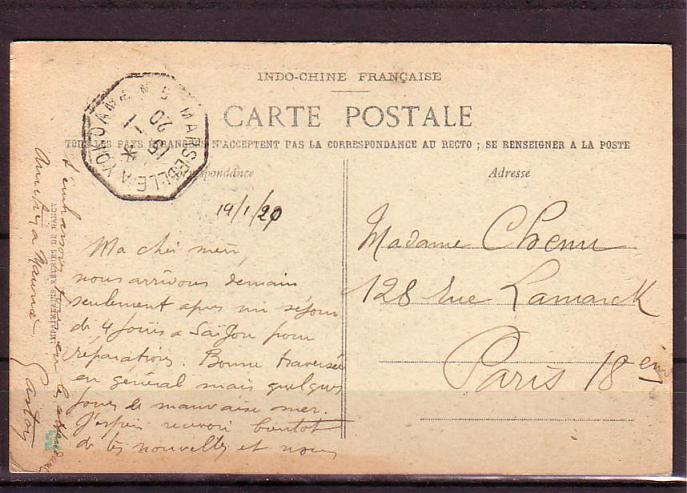 INDO-CHINE FRANÇAISE
CARTE POSTALE
TOUS LES PAYS ÉTRANGERS N'ACCEPTENT PAS LA CORRESPONDANCE AU RECTO ; SE RENSEIGNER A LA POSTE
Correspondance
Adresse
MARSEILLE A YOKOHAMA N 5
15 -1
20
19/1/20
Ma chère mère,
nous arrivons demain
seulement après un séjour
de 4 jours à Saïgon pour
réparations. Bonne traversée
en général mais quelques
jours de mauvaise mer.
J'espère recevoir bientôt
de tes nouvelles et nous
t'embrassons
Gaston
Madame Chenu
128 rue Lamarck
Paris 18 em